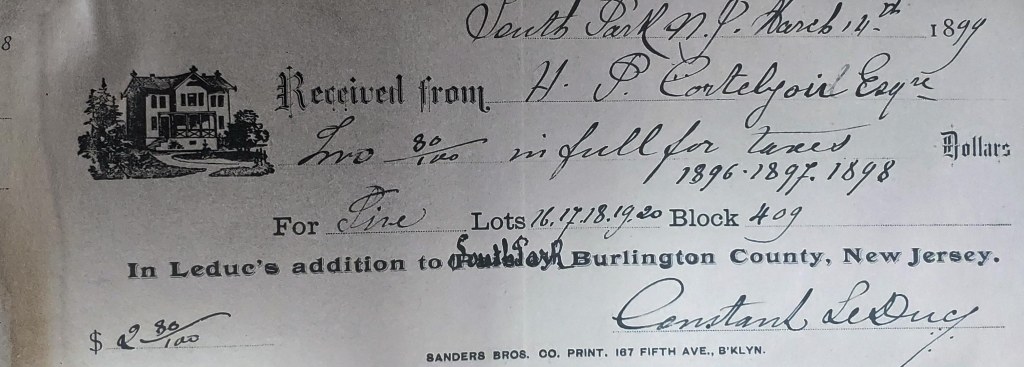 8
South Park N.J. March 14th 1899
Received from H. P. Cortelyou Esqre
Two 80/100 in full for taxes Dollars
1896-1897-1898
For Five Lots 16.17.18.19.20 Block 409
In Leduc's addition to South Park Burlington County, New Jersey.
Constant LeDuc
$ 2 80/100
SANDERS BROS. CO. PRINT. 167 FIFTH AVE., B'KLYN.